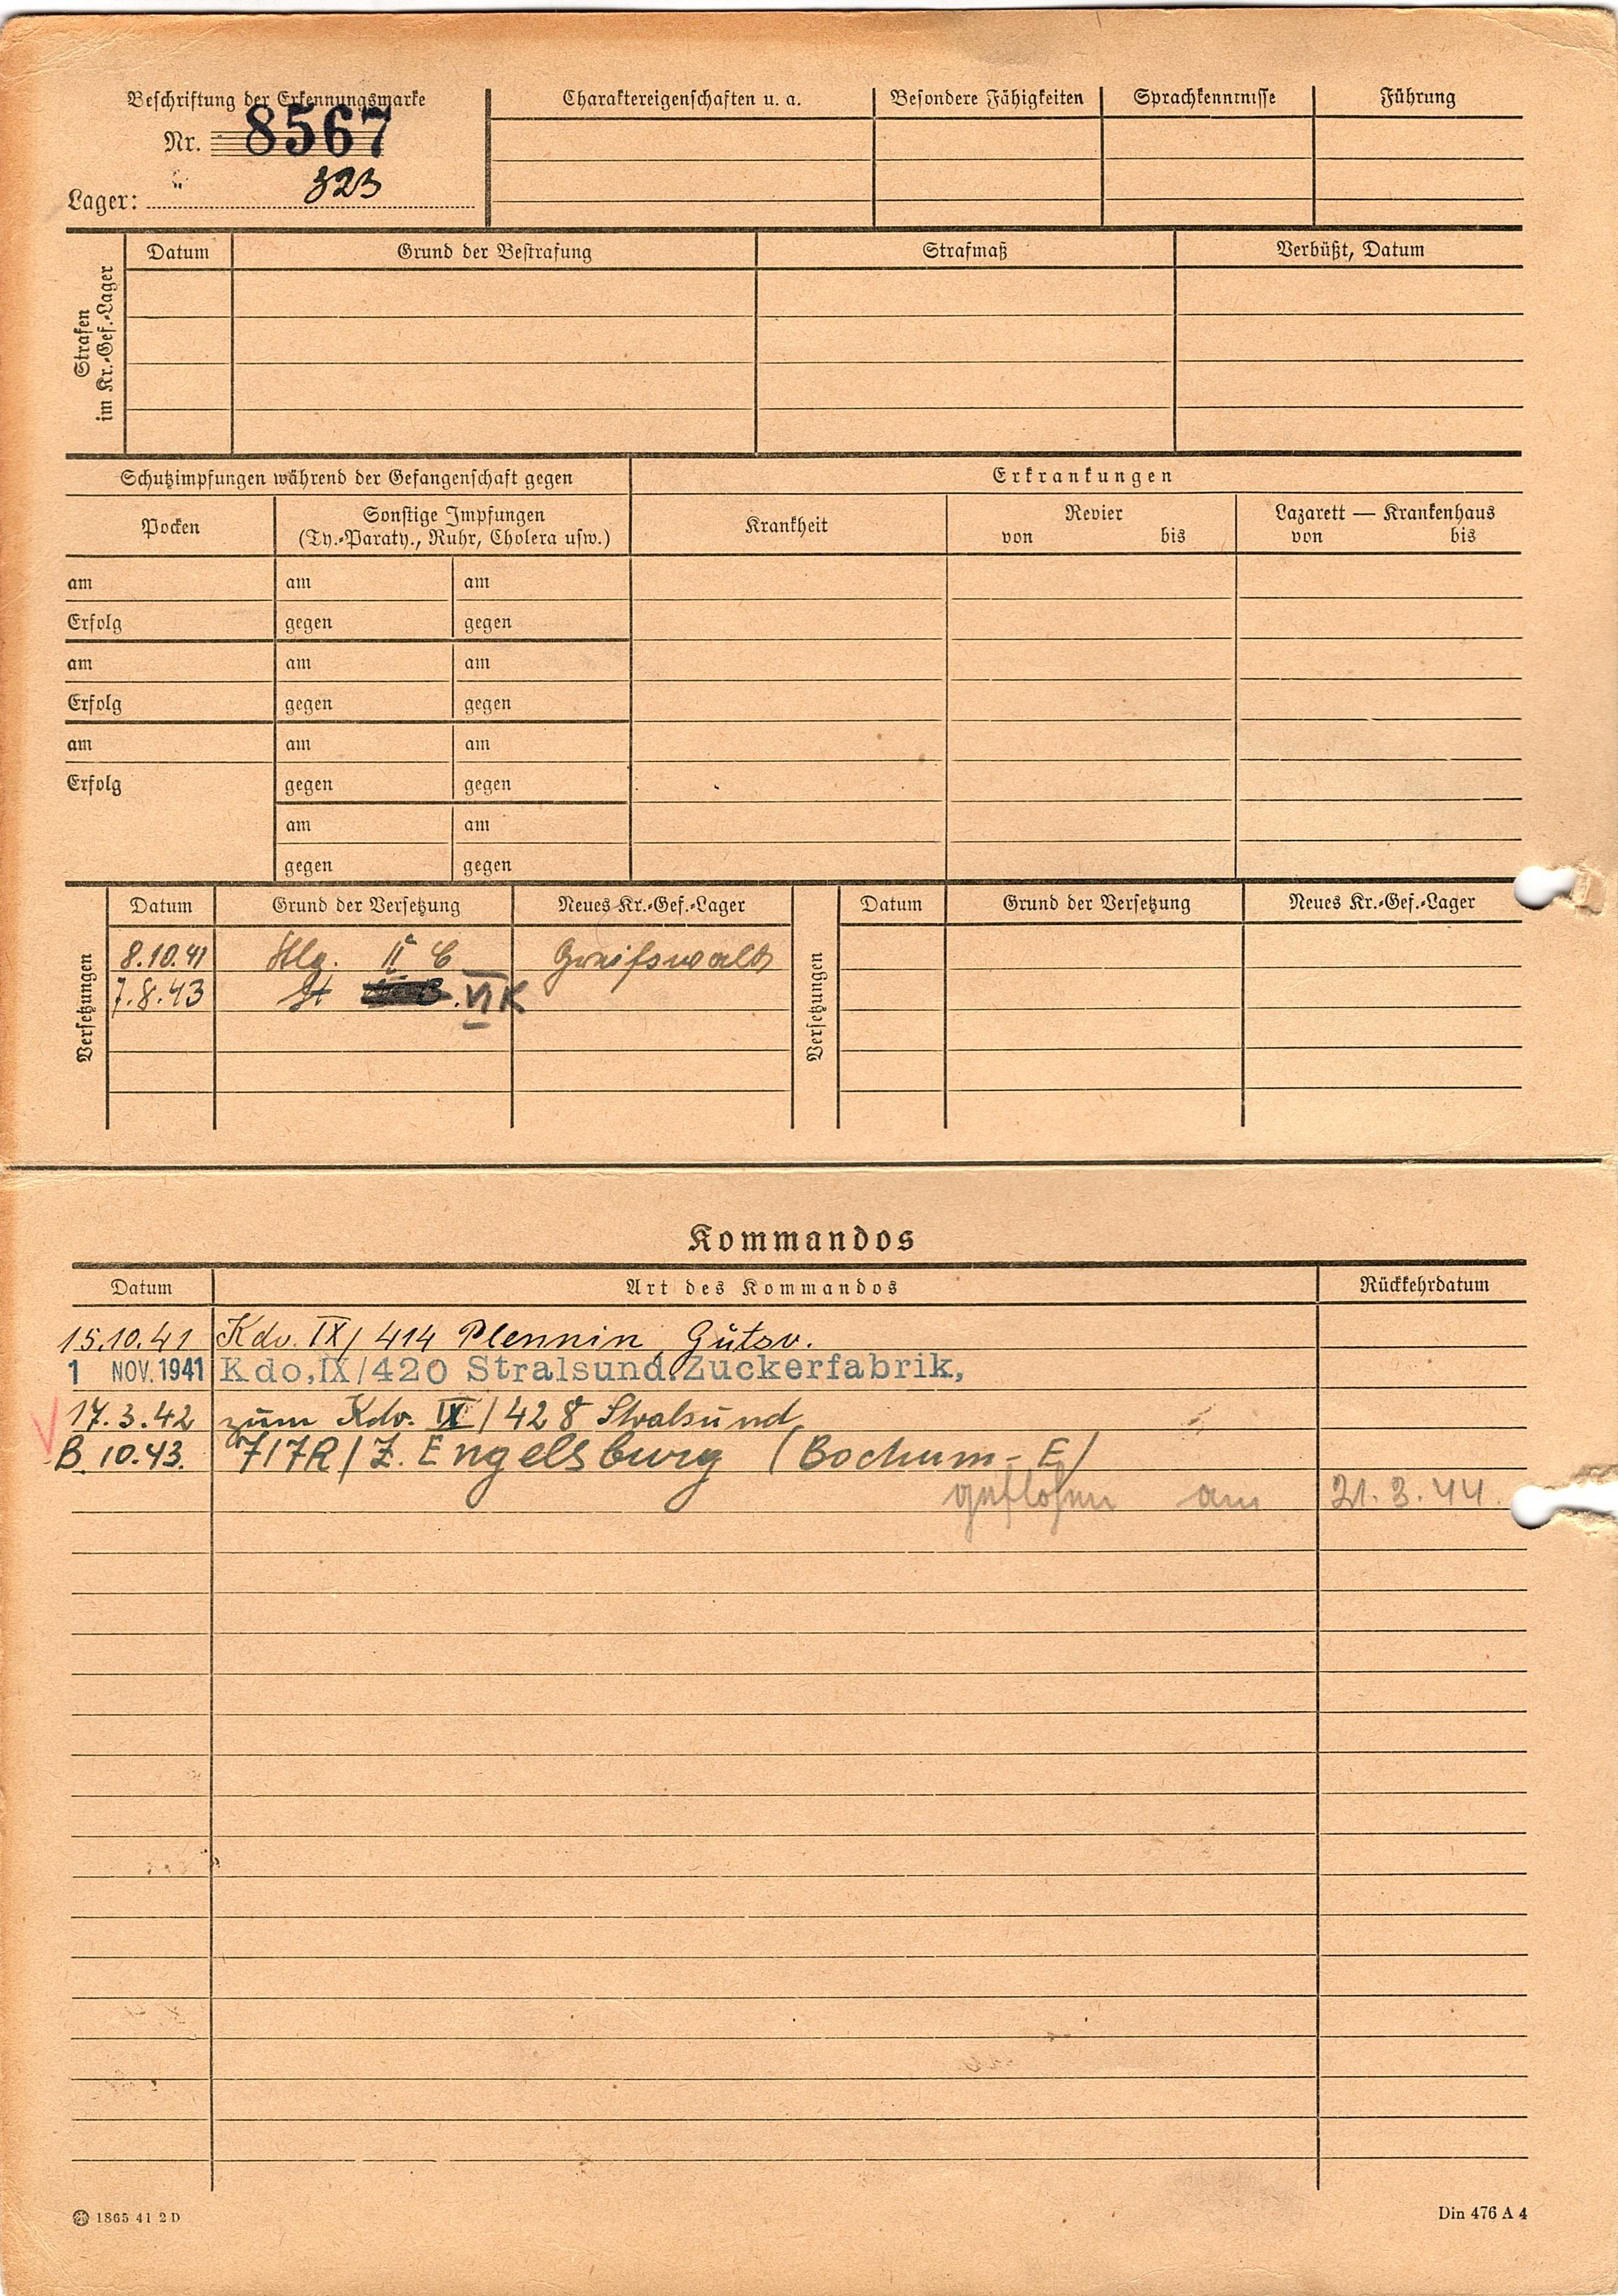 Beschriftung der Erkennungsmarke
Nr. 8567
Lager: " 323
Charaktereigenschaften u. a.
Besondere Fähigkeiten
Sprachkenntnisse
Führung
Strafen im Kr.-Gef.-Lager
Datum
Grund der Bestrafung
Strafmaß
Verbüßt, Datum
Schutzimpfungen während der Gefangenschaft gegen
Erkrankungen
Pocken
Sonstige Impfungen
(Ty.-Paraty., Ruhr, Cholera usw.)
Krankheit
Revier
von bis
Lazarett — Krankenhaus
von bis
am am am
Erfolg gegen gegen
am am am
Erfolg gegen gegen
am am am
Erfolg gegen gegen
am am
gegen gegen
Versetzungen
Datum Grund der Versetzung Neues Kr.-Gef.-Lager
8.10.41 Stlg. II C Greifswald
7.8.43 St VI K
Versetzungen
Datum Grund der Versetzung Neues Kr.-Gef.-Lager
Kommandos
Datum Art des Kommandos Rückkehrdatum
15.10.41 Kdo. IX/414 Plennin, Gutsv.
1 NOV. 1941 Kdo, IX/420 Stralsund. Zuckerfabrik,
17.3.42 zum Kdo. IX/428 Stralsund
10.43. 717R/Z. Engelsburg (Bochum-E)
geflohen am 21.3.44.
1865 41 2 D
Din 476 A 4